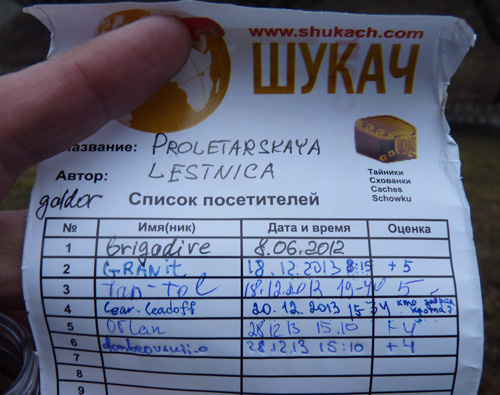 www.shukach.com
ШУКАЧ
название: PROLETARSKAYA
Автор: LESTNICA
galdor
Список посетителей
Тайники
Схованки
Caches
Schowku
№ Имя(ник) Дата и время Оценка
1 Brigadire 8.06.2012
2 GRANit 18.12.2013 8:15 +5
3 Tan-Tol 18.12.2013 19-40 5
4 Lear-Leadoff 20.12.2013 15-34 кто крота?
5 Orlan 28.12.13 15:10 +4
6 28.12.13 15:10 +4
7
8
9